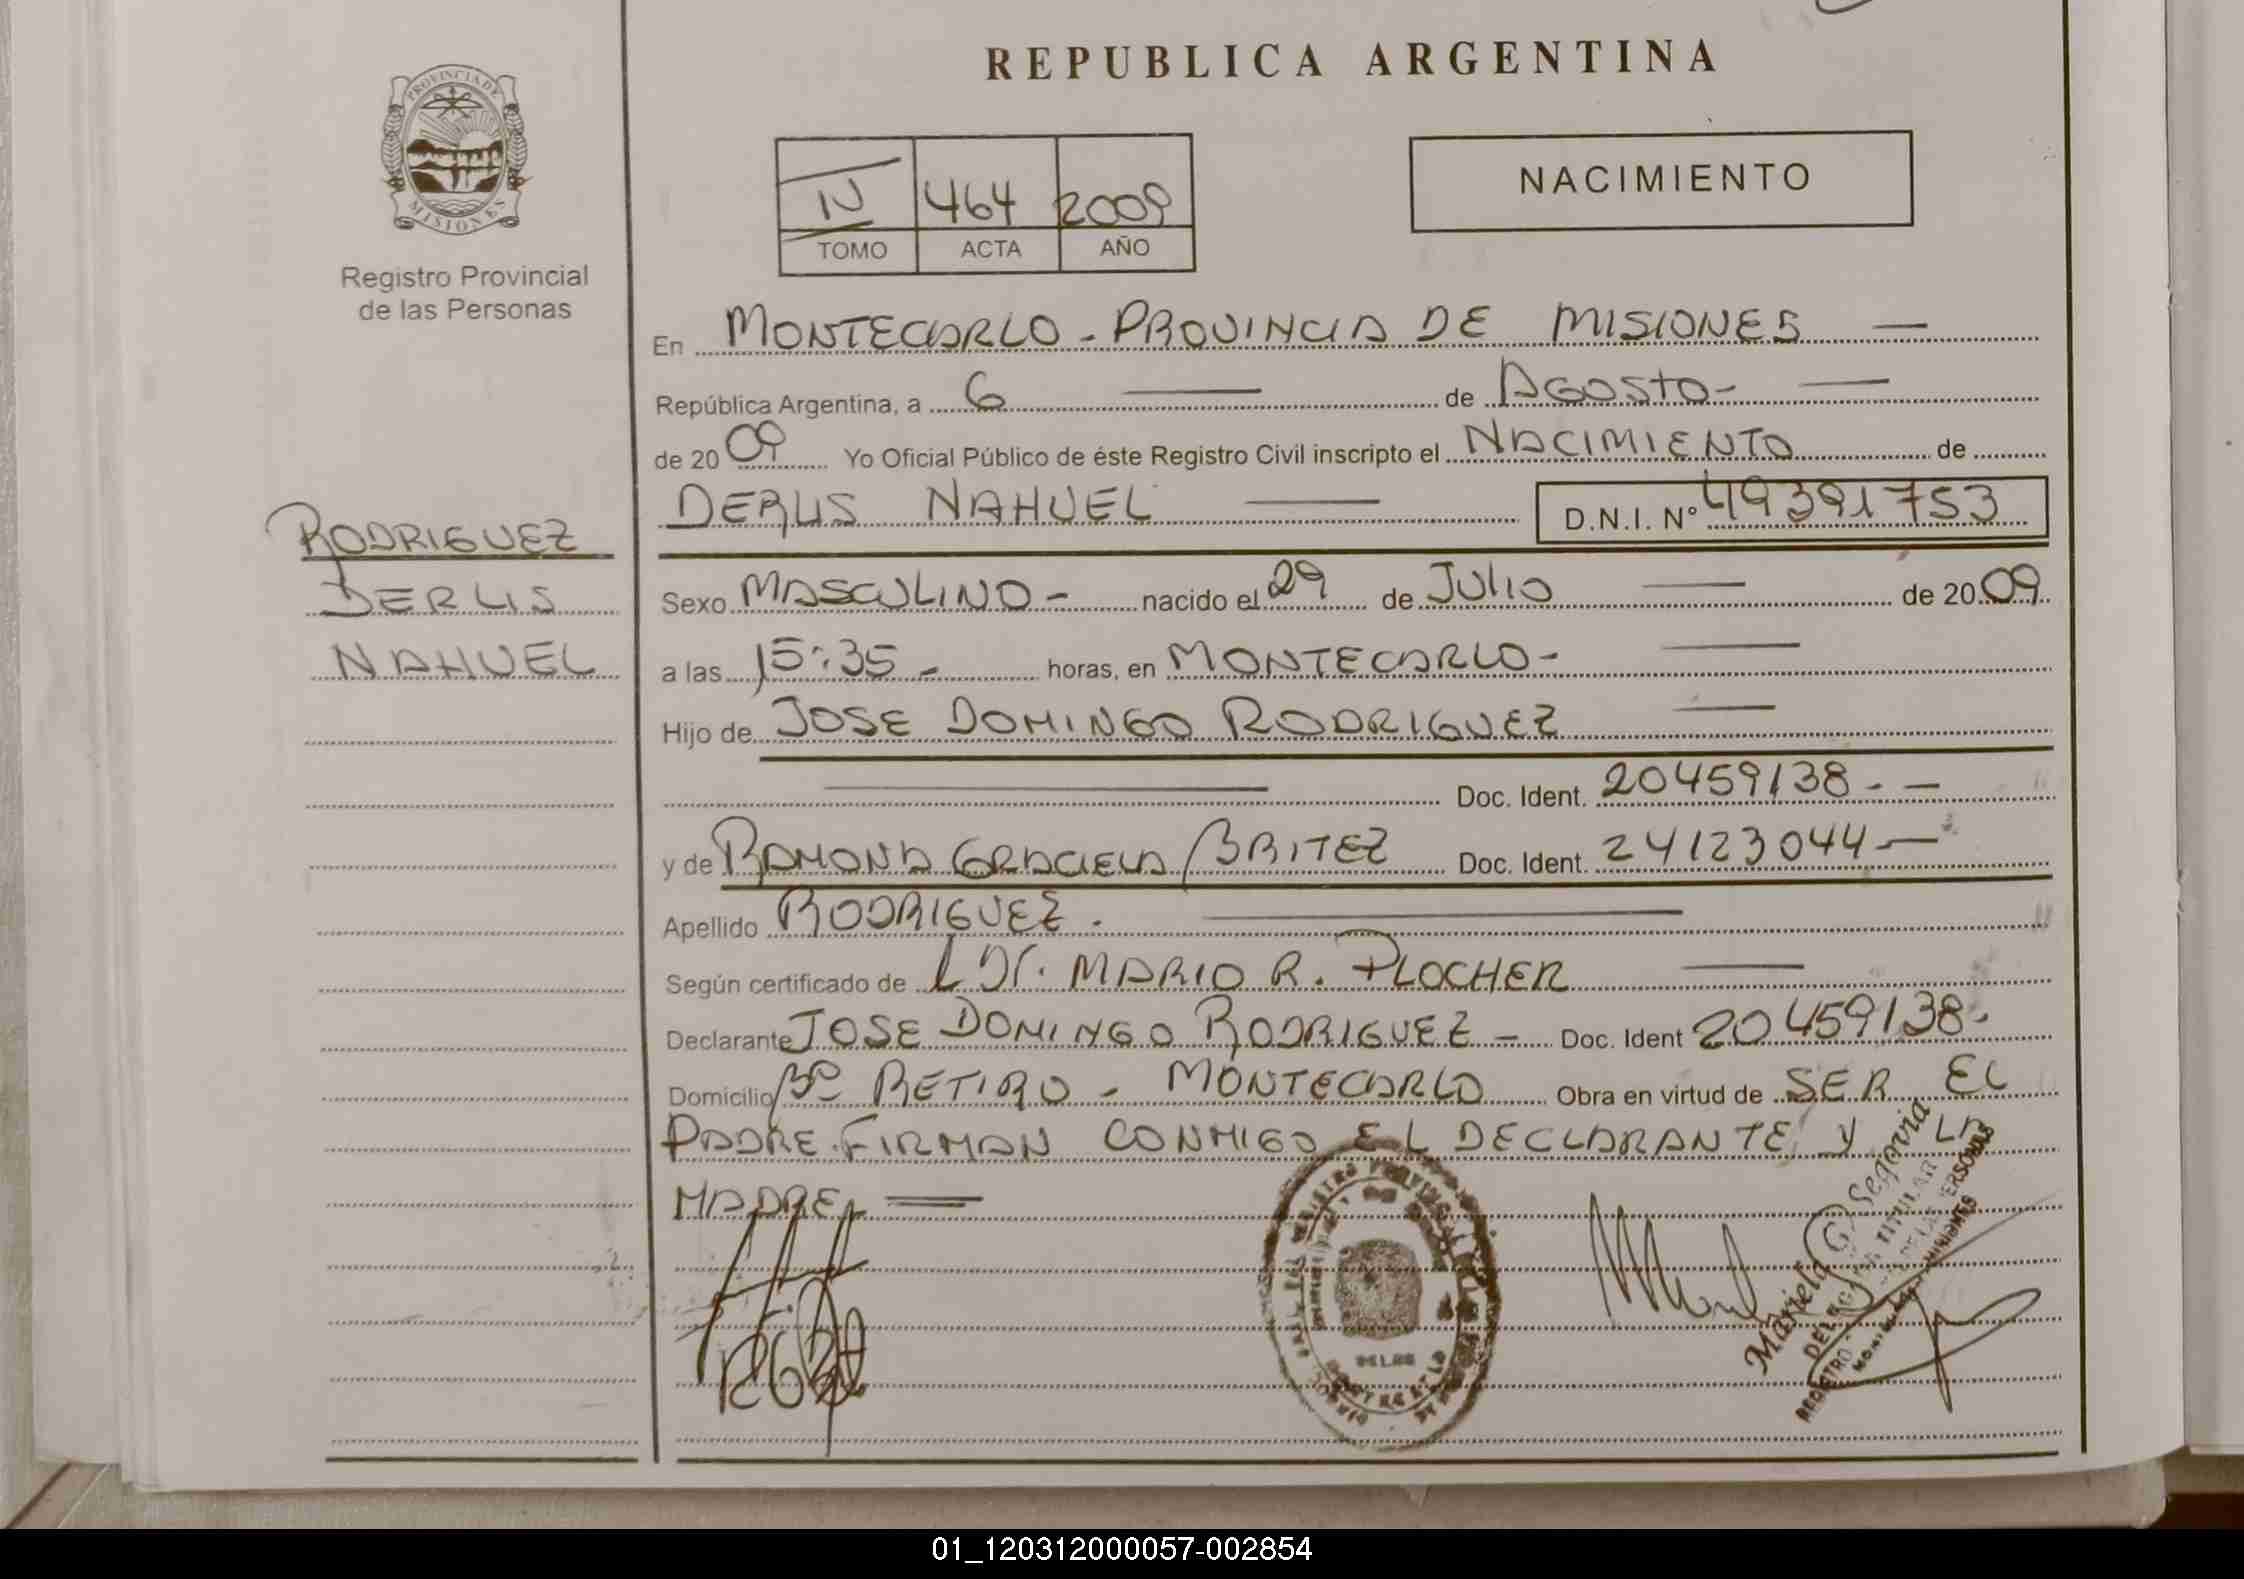 REPUBLICA ARGENTINA
PROVINCIA DE
MISIONES
Registro Provincial
de las Personas
IV 464 2009
TOMO ACTA AÑO
NACIMIENTO
En MONTECARLO - PROVINCIA DE MISIONES —
República Argentina, a 6 — de AGOSTO - —
de 20 09 Yo Oficial Público de éste Registro Civil inscripto el NACIMIENTO de
DERLIS NAHUEL — D.N.I. Nº 49391753
RODRIGUEZ
DERLIS
NAHUEL
Sexo MASCULINO - nacido el 29 de JULIO — de 20 09
a las 15:35 - horas, en MONTECARLO - —
Hijo de JOSE DOMINGO RODRIGUEZ —
— Doc. Ident. 20459138 - —
y de RAMONA GRACIELA BRITEZ Doc. Ident. 24123044 —
Apellido RODRIGUEZ. —
Según certificado de Dr. MARIO R. PLOCHER —
Declarante JOSE DOMINGO RODRIGUEZ - Doc. Ident 20459138.
Domicilio Bº RETIRO - MONTECARLO Obra en virtud de SER EL
PADRE. FIRMAN CONMIGO EL DECLARANTE Y LA
MADRE —
Mariela G. Segovia
01_120312000057-002854